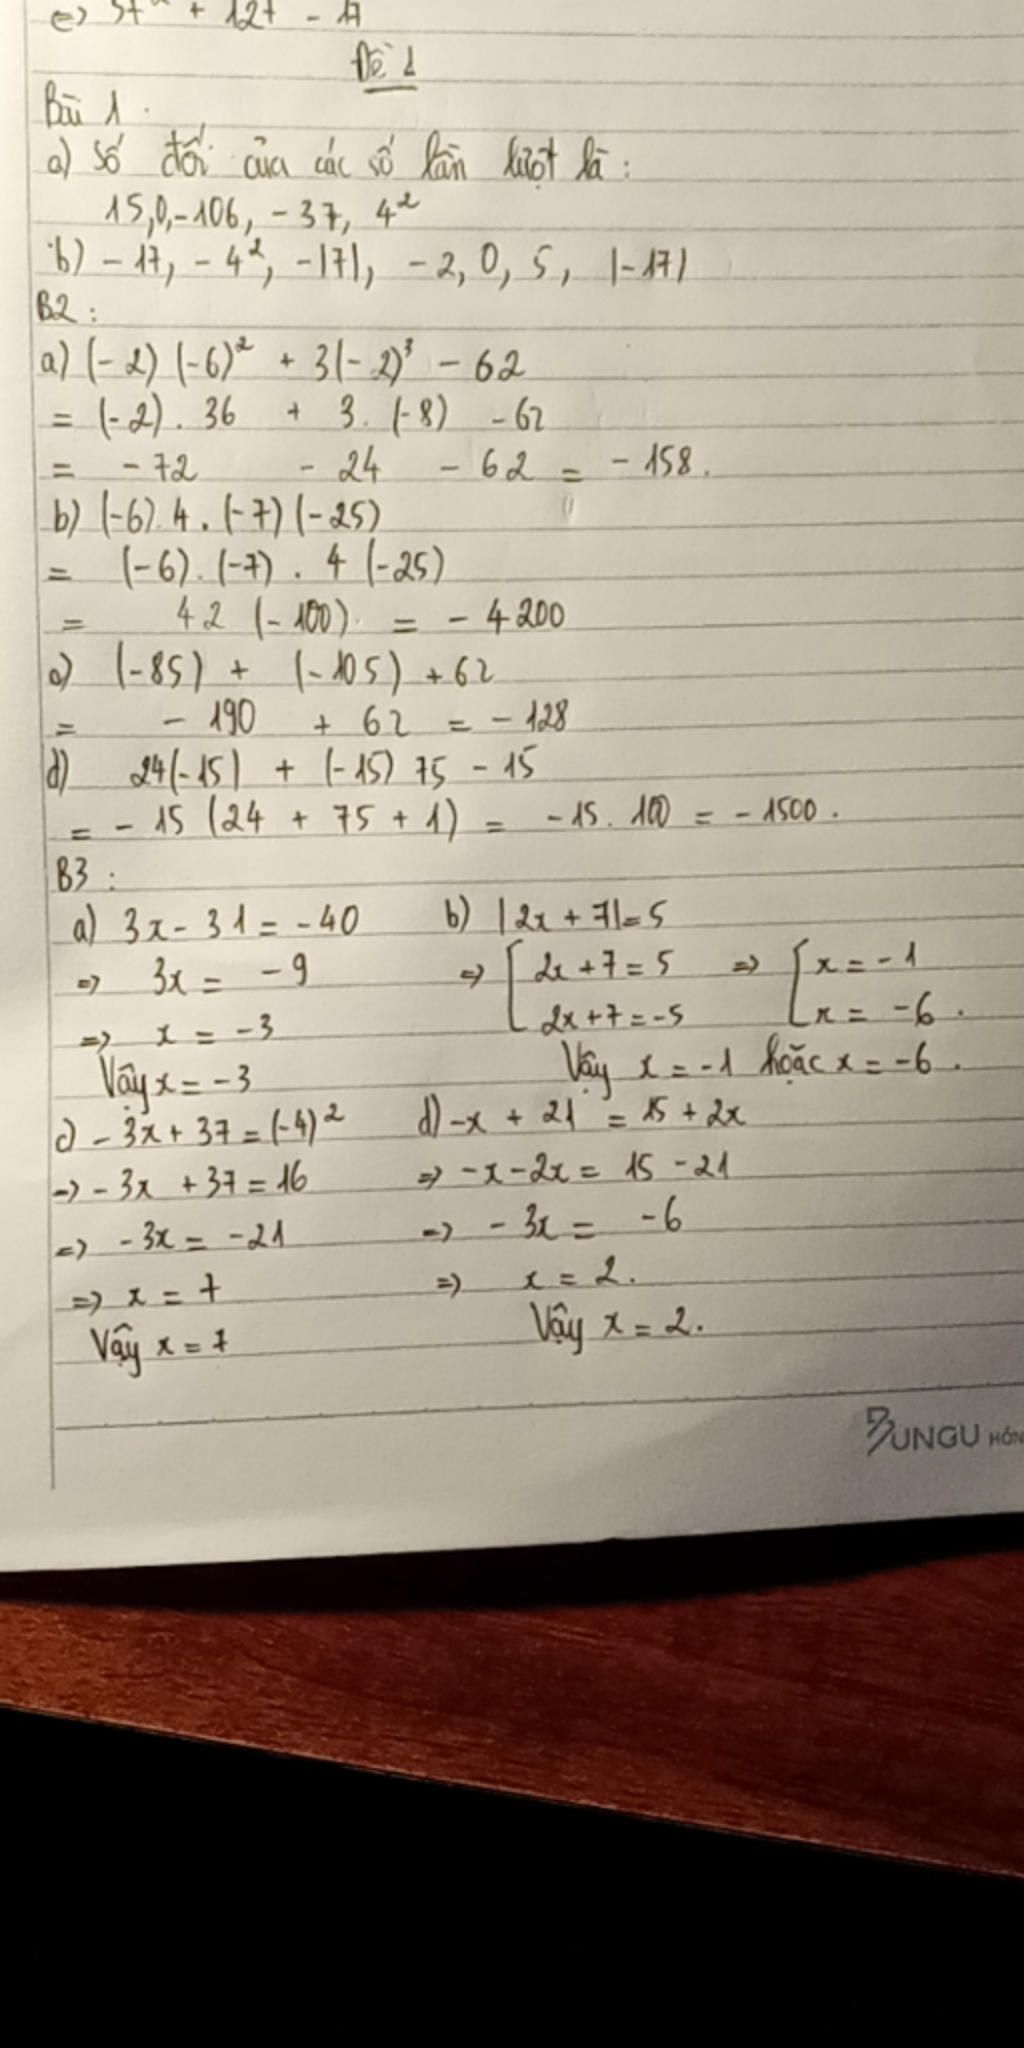 + 12t - 17
Đề 1
Bài 1.
a) Số đối của các số lần lượt là:
15, 0, -106, -37, 4²
b) -17, -4², -|7|, -2, 0, 5, |-17|
B2:
a) (-2) (-6)² + 3(-2)³ - 62
= (-2). 36 + 3. (-8) - 62
= -72 - 24 - 62 = -158.
b) (-6). 4. (-7) (-25)
= (-6). (-7). 4 (-25)
= 42 (-100) = -4200
c) (-85) + (-105) + 62
= -190 + 62 = -128
d) 24(-15) + (-15) 75 - 15
= -15 (24 + 75 + 1) = -15. 100 = -1500.
B3:
a) 3x - 31 = -40 b) |2x + 7| = 5
=> 3x = -9 => [ 2x + 7 = 5 => [ x = -1
=> x = -3 2x + 7 = -5 x = -6.
Vậy x = -3 Vậy x = -1 hoặc x = -6.
c) -3x + 37 = (-4)² d) -x + 21 = 15 + 2x
=> -3x + 37 = 16 => -x - 2x = 15 - 21
=> -3x = -21 => -3x = -6
=> x = 7 => x = 2.
Vậy x = 7 Vậy x = 2.
UNGU